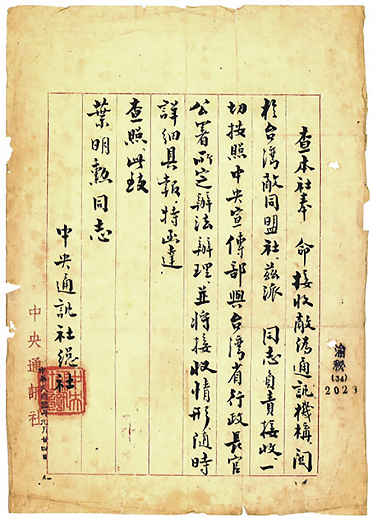 渝秘
(34)
2023
查本社奉 命接收敵偽通訊機構關
於台灣敵同盟社、茲派 同志負責接收、一
切按照中央宣傳部與台灣省行政長官
公署所定辦法辦理、並將接收情形隨時
詳細具報、特函達
查照、此致
葉明勳同志
中央通訊社總社
九月廿四日
中央通訊社